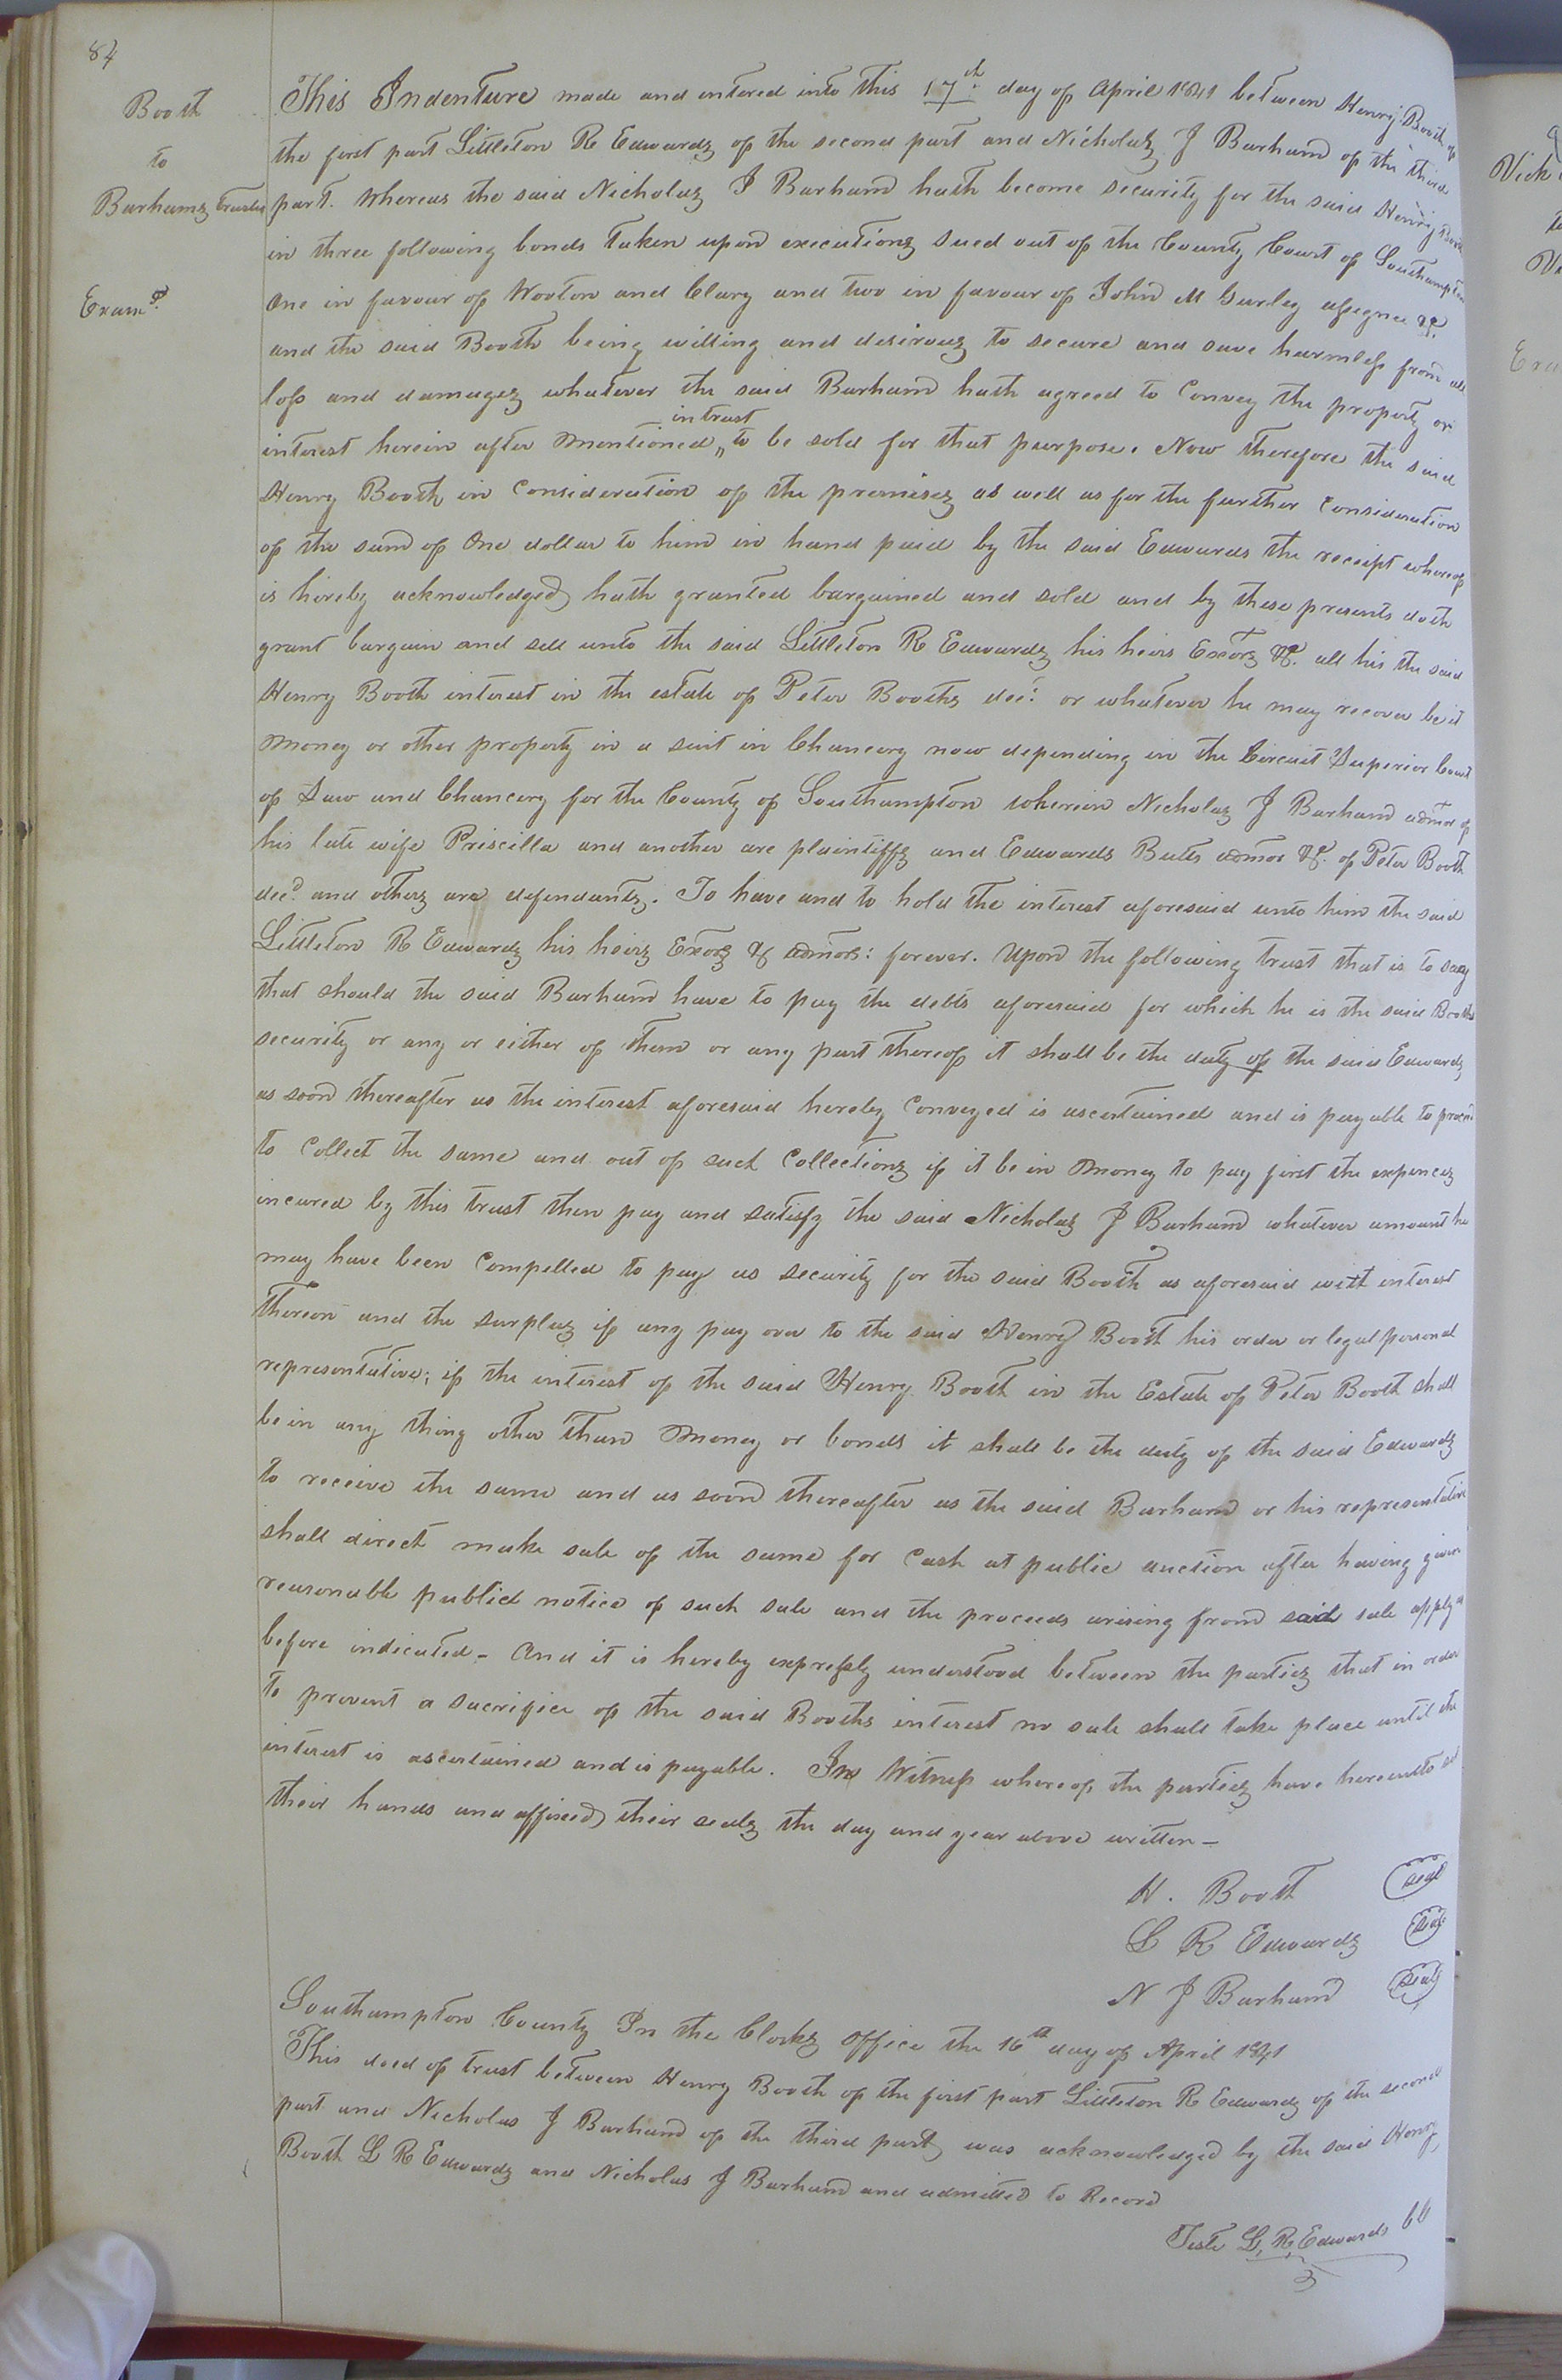 84
Booth
to
Barhams trustee
Exam.d
This Indenture made and entered into this 17th. day of April 1841 between Henry Booth of
the first part Littleton R Edwards of the second part and Nicholas J Barham of the third
part. Whereas the said Nicholas J Barham hath become security for the said Henry Booth
in three following bonds taken upon executions sued out of the County Court of Southampton
One in favour of Wooton and Clary and two in favour of John M Gurley assignee &c.
and the said Booth being willing and desirous to secure and save harmless from all
loss and damages whatever the said Barham hath agreed to Convey the property or
in trust
interest herein after Mentioned,, to be sold for that purpose. Now therefore the said
Henry Booth in Consideration of the premises as well as for the further Consideration
of the sum of One dollar to him in hand paid by the said Edwards the receipt whereof
is hereby acknowledged, hath granted bargained and sold and by these presents doth
grant bargain and sell unto the said Littleton R Edwards his heirs Exors &c. all his the said
Henry Booth interest in the estate of Peter Booths dec.d or whatever he may recover be it
Money or other property in a suit in Chancery now depending in the Circuit Superior Court
of Law and Chancery for the County of Southampton wherein Nicholas J Barham admor of
his late wife Priscilla and another are plaintiffs and Edwards Butts admor &c. of Peter Booth
dec.d and others are defendants. To have and to hold the interest aforesaid unto him the said
Littleton R Edwards his heirs Exors & admors: forever. Upon the following trust that is to say
that should the said Barham have to pay the debts aforesaid for which he is the said Booths
security or any or either of them or any part thereof it shall be the duty of the said Edwards
as soon thereafter as the interest aforesaid hereby Conveyed is ascertained and is payable to proceed
to Collect the same and out of such Collections if it be in Money to pay first the expences
incured by this trust then pay and satisfy the said Nicholas J Barham whatever amount he
may have been Compelled to pay as security for the said Booth as aforesaid with interest
thereon and the surplus if any pay over to the said Henry Booth his order or legal personal
representative; if the interest of the said Henry Booth in the Estate of Peter Booth shall
be in any thing other than Money or bonds it shall be the duty of the said Edwards
to receive the same and as soon thereafter as the said Barham or his representative
shall direct make sale of the same for Cash at public auction after having given
reasonable public notice of such sale and the proceeds arising from said sale apply as
before indicated - And it is hereby expressly understood between the parties that in order
to prevent a sacrifice of the said Booths interest no sale shall take place until the
interest is ascertained and is payable. In Witness whereof the parties have hereunto set
their hands and affixed their seals the day and year above written -
H. Booth seal
L R Edwards seal
N J Barham seal
Southampton County In the Clerks office the 16th day of April 1841
This deed of trust between Henry Booth of the first part Littleton R Edwards of the second
part and Nicholas J Barham of the third part, was acknowledged by the said Henry
Booth L R Edwards and Nicholas J Barham and admitted to Record
Teste L. R. Edwards CC
Vick